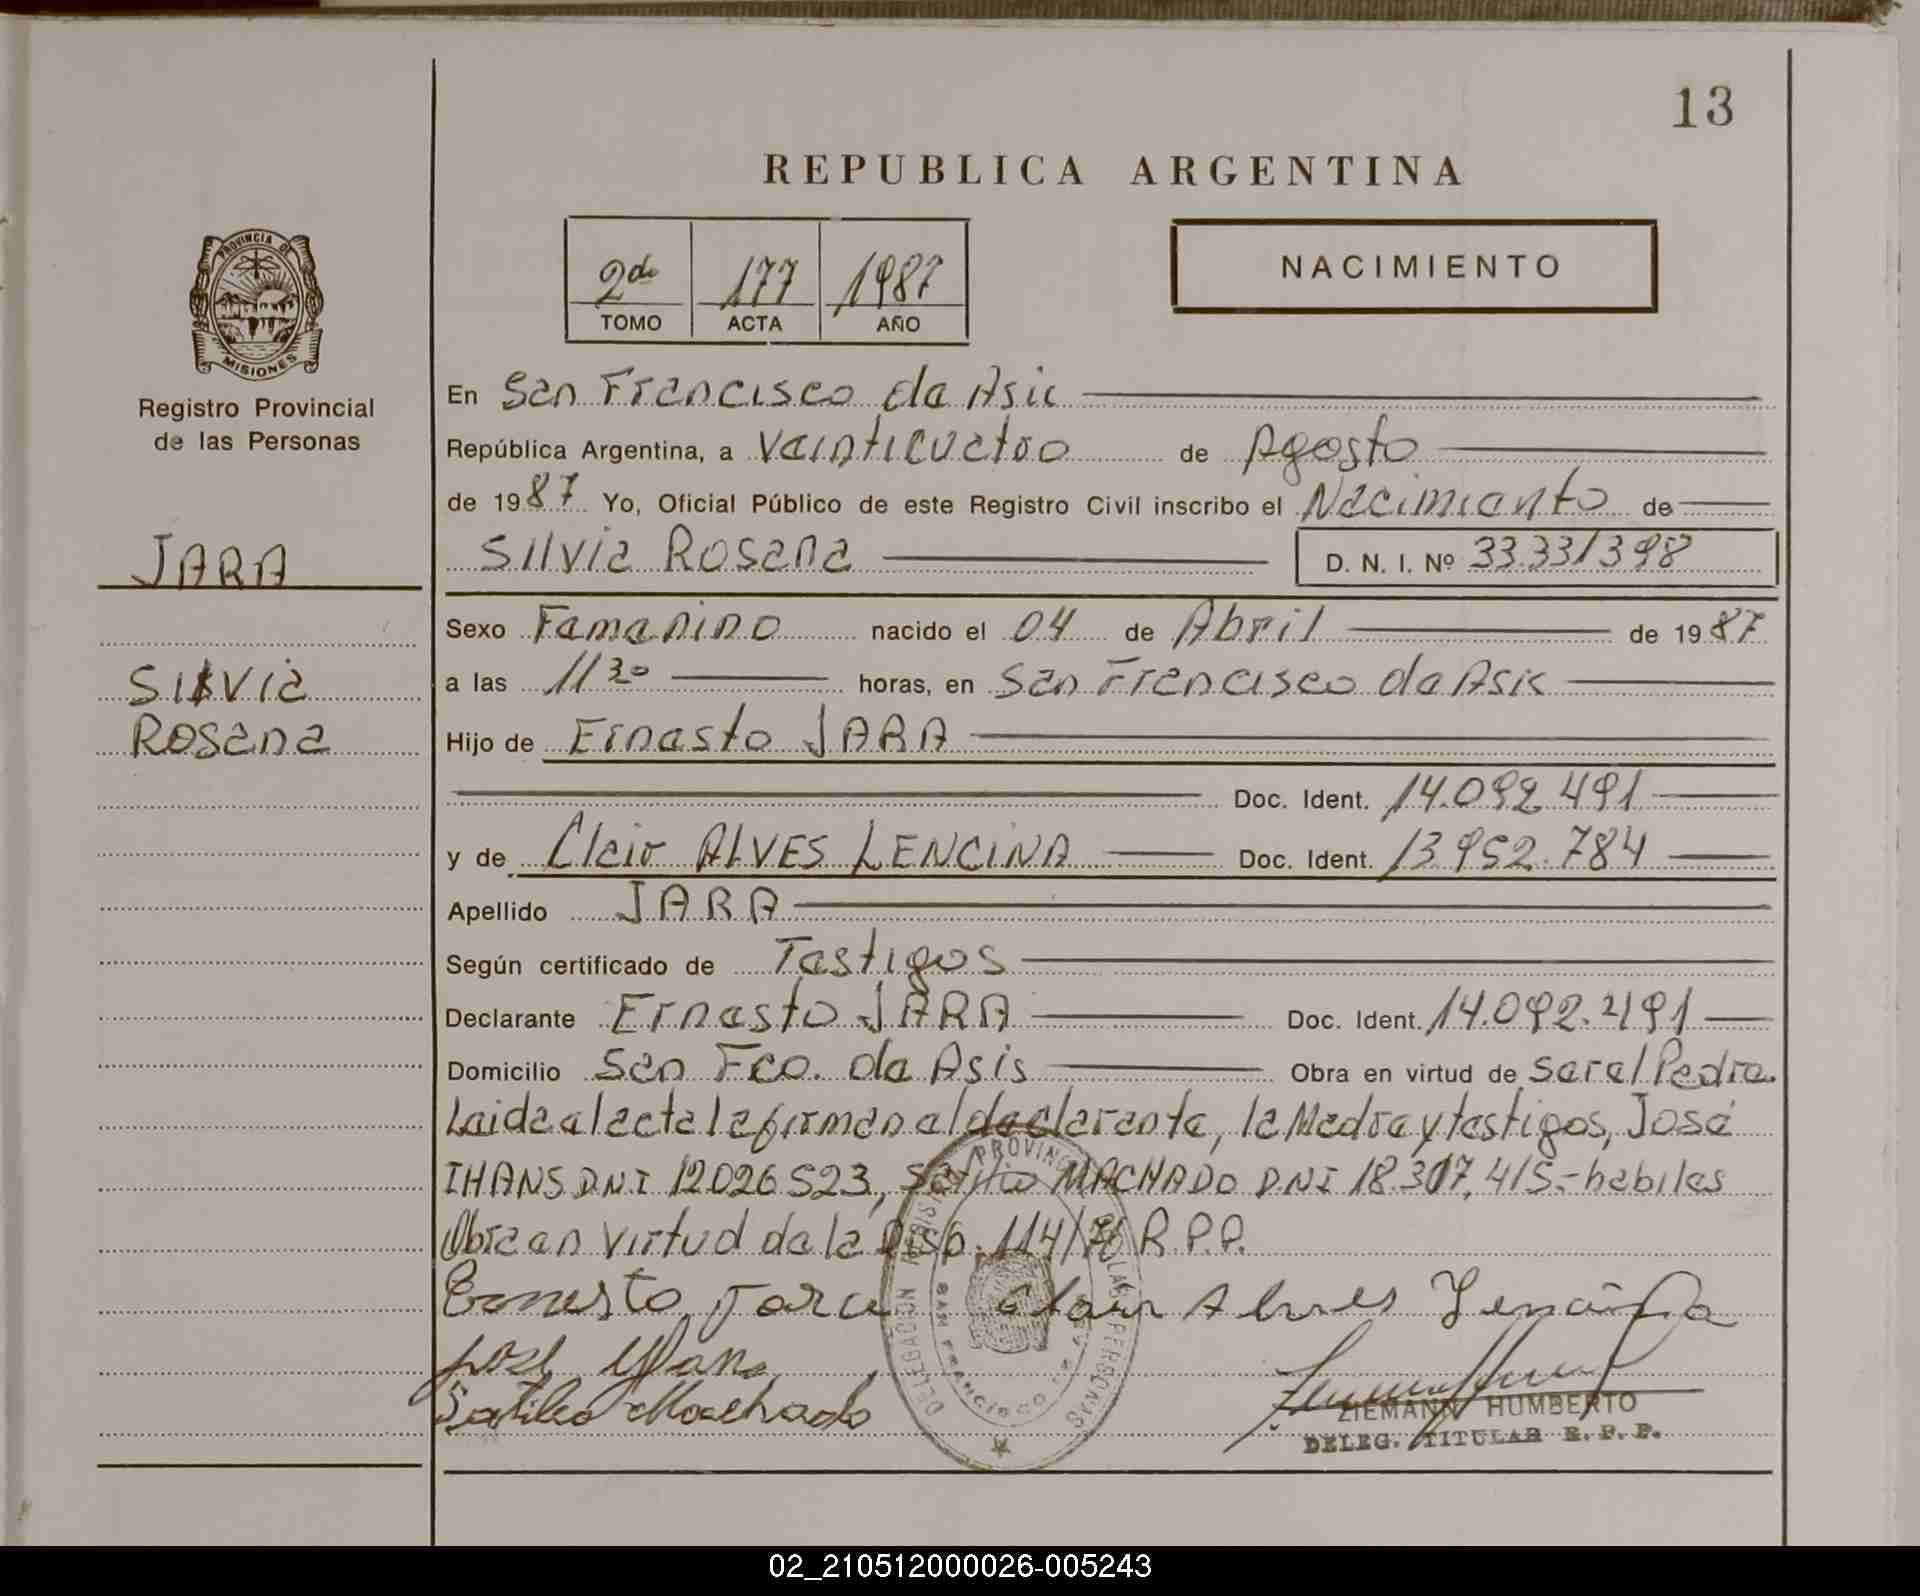 13
REPUBLICA ARGENTINA
2do 177 1987
TOMO ACTA AÑO
NACIMIENTO
PROVINCIA DE
MISIONES
Registro Provincial
de las Personas
JARA
Silvia
Rosana
En San Francisco de Asis
República Argentina, a Veinticuatro de Agosto
de 1987 Yo, Oficial Público de este Registro Civil inscribo el Nacimiento de
Silvia Rosana D. N. I. Nº 33.331398
Sexo Femenino nacido el 04 de Abril de 1987
a las 11 30 horas, en San Francisco de Asis
Hijo de Ernesto JARA
Doc. Ident. 14.092.491
y de Clair ALVES LENCINA Doc. Ident. 13.952.784
Apellido JARA
Según certificado de Testigos
Declarante Ernesto JARA Doc. Ident. 14.092.491
Domicilio San Fco. de Asis Obra en virtud de ser el Padre.
Leida el acta la firman el declarante, la Madre y testigos, José
IHANS DNI 12026523, Satilio MACHADO DNI 18.307.415.- habiles
Obra en virtud de la Disp. 114/ R.P.P.
Ernesto Jara Clair Alves Lencina
José
Satilio Machado
ZIEMANN HUMBERTO
DELEG. TITULAR R. P. P.
02_210512000026-005243